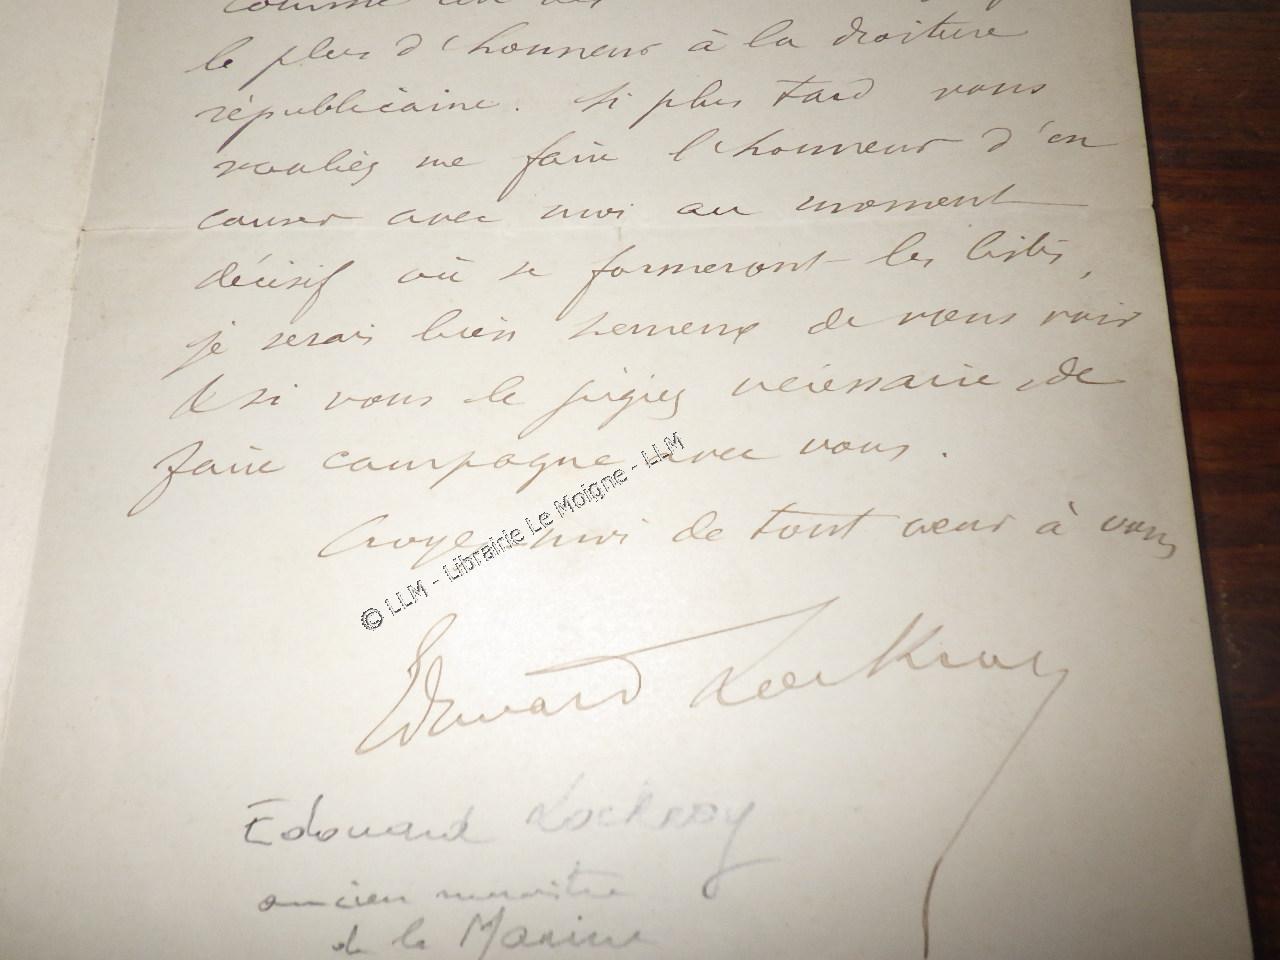 comme un des
le plus d'honneur à la droiture
républicaine. Si plus tard vous
vouliez me faire l'honneur d'en
causer avec moi au moment
décisif où se formeront les listes,
je serais bien heureux de vous voir
& si vous le jugiez nécessaire, de
faire campagne avec vous.
Croyez moi de tout cœur à vous
Edouard Lockroy
Edouard Lockroy
ancien ministre
de la Marine
© LLM - Librairie Le Moigne - LLM